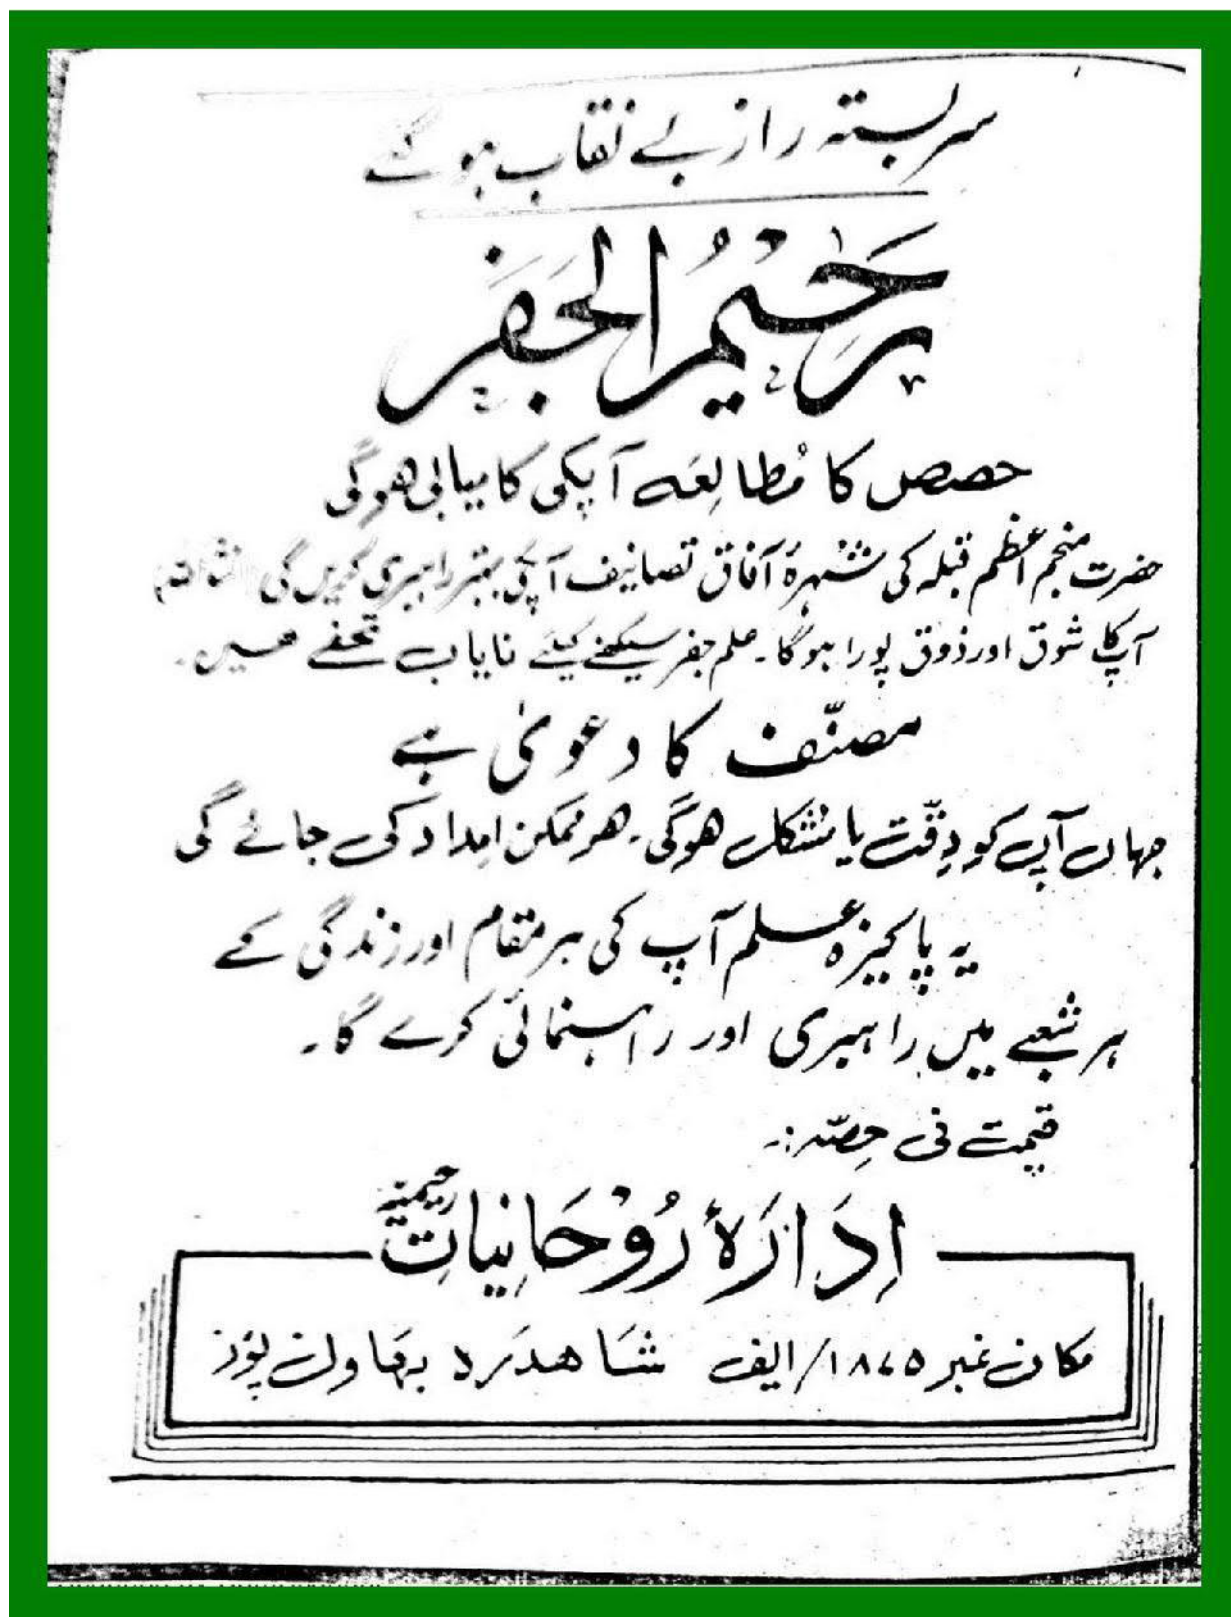 سربستہ راز بے نقاب ہو گئے
رحیم الجفر
حصص کا مُطالِعَہ آپکی کامیابی ھوگی
حضرت منجم اعظم قبلہ کی شہرۂ آفاق تصانیف آپکی بہتر راہبری کریں گی انشاءاللہ
آپکا شوق اور ذوق پورا ہوگا۔ علم جفر سیکھنے کیلئے نایاب تحفے ھیں۔
مصنّف کا دعویٰ ہے
جہاں آپ کو دِقّت یا مُشکل ھوگی۔ ھر ممکن اِمداد کی جائے گی
یہ پاکیزہ علم آپ کی ہر مقام اور زندگی کے
ہر شُعبے میں راہبری اور راہنمائی کرے گا۔
قیمت فی حِصّہ :۔
اِدَارَۂ رُوْحَانِیاتِ رحیمیہ
مکان نمبر ۱۸۷۵/ایف شَاھدَرہ بھَاول پُور